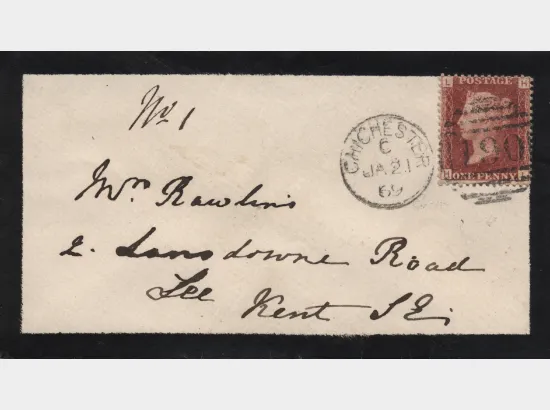 No 1
L POSTAGE H
CHICHESTER
C
JA 21
69
190
H ONE PENNY L
Mrs Rawlins
2. Lansdowne Road
Lee Kent S.E.